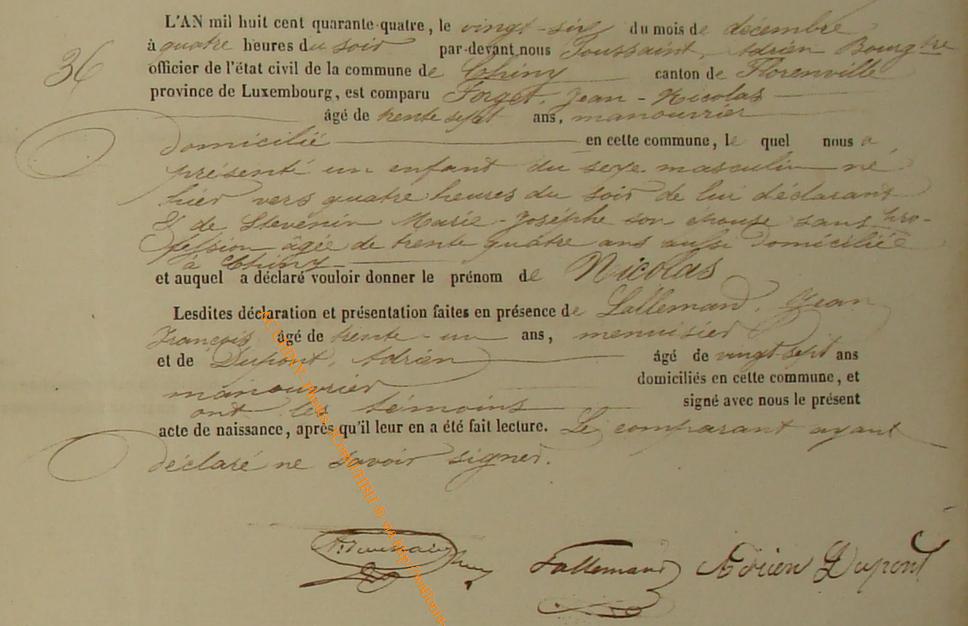 36
L'AN mil huit cent quarante-quatre, le vingt-six du mois de décembre
à quatre heures du soir par-devant nous Toussaint, Adrien Bourgtre
officier de l'état civil de la commune de Chiny canton de Florenville
province de Luxembourg, est comparu Forget, Jean-Nicolas
âgé de trente sept ans, manouvrier
domicilié en cette commune, le quel nous a
présenté un enfant du sexe masculin né
hier vers quatre heures du soir de lui déclarant
& de Stevenin Marie-Josèphe son epouse sans pro-
fession âgée de trente quatre ans aussi domiciliée
à Chiny
et auquel a déclaré vouloir donner le prénom de Nicolas
Lesdites déclaration et présentation faites en présence de Lallemand, Jean
François âgé de trente-un ans, menuisier
et de Dupont, Adrien âgé de vingt-sept ans
manouvrier domiciliés en cette commune, et
ont les témoins signé avec nous le présent
acte de naissance, après qu'il leur en a été fait lecture. Le comparant ayant
déclaré ne savoir signer.
Lallemand Adrien Dupont